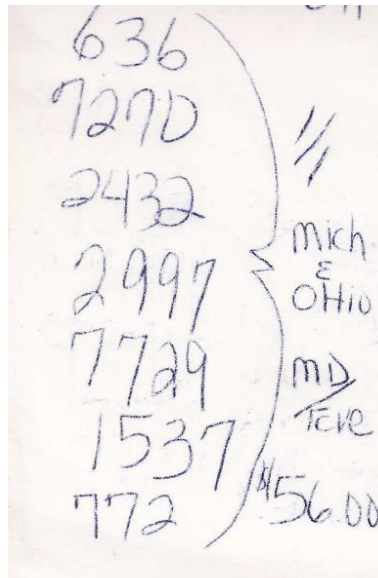 636
7270
2432
2997
7729
1537
772
//
Mich
&
OHio
MD/
$56.00